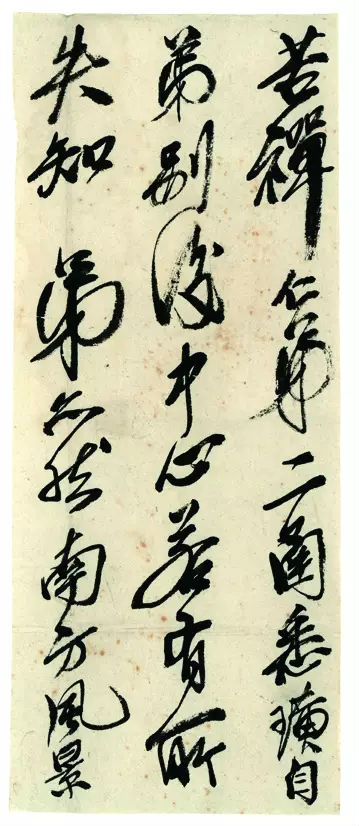 苦禪仁弟二函悉璜自
弟別後中心若有所
失知 弟亦然南方風景